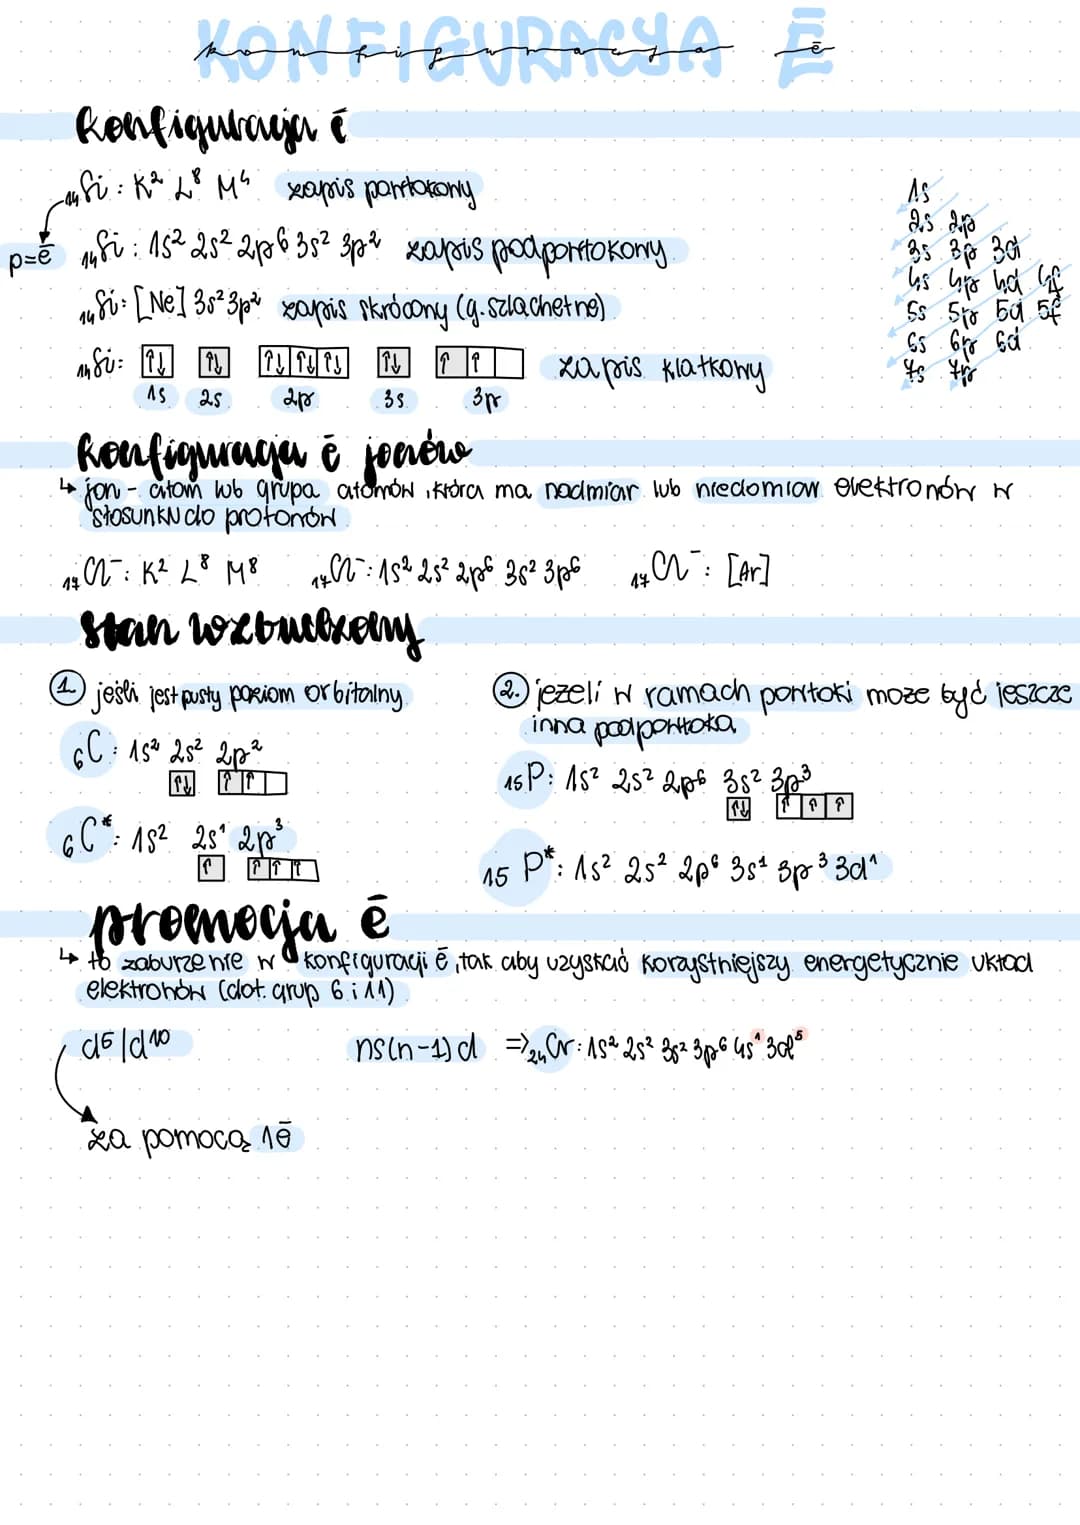 KONFIGURACYA Ē
konfiguracja ē
konfiguracja ē
₁₄Si : K² L⁸ M⁴ zapis powłokowy
p=ē ₁₄Si : 1s² 2s² 2p⁶ 3s² 3p² zapis podpowłokowy
₁₄Si : [Ne] 3s² 3p² zapis skrócony (g. szlachetne)
₁₄Si: ↑↓ ↑↓ ↑↓ ↑↓ ↑↓ ↑↓ ↑ ↑ zapis klatkowy
1s 2s 2p 3s 3p
1s
2s 2p
3s 3p 3d
4s 4p 4d 4f
5s 5p 5d 5f
6s 6p 6d
7s 7p
konfiguracja ē jonów
↳ jon - atom lub grupa atomów, która ma nadmiar lub niedomiar elektronów w
stosunku do protonów
₁₇Cl⁻: K² L⁸ M⁸ ₁₇Cl⁻: 1s² 2s² 2p⁶ 3s² 3p⁶ ₁₇Cl⁻: [Ar]
stan wzbudzony
1 jeśli jest pusty poziom orbitalny
₆C : 1s² 2s² 2p²
↑↓ ↑ ↑
₆C*: 1s² 2s¹ 2p³
↑ ↑ ↑ ↑
2. jeżeli w ramach powłoki może być jeszcze
inna podpowłoka
₁₅P: 1s² 2s² 2p⁶ 3s² 3p³
↑↓ ↑ ↑ ↑
₁₅P*: 1s² 2s² 2p⁶ 3s¹ 3p³ 3d¹
promocja ē
↳ to zaburzenie w konfiguracji ē, tak aby uzyskać korzystniejszy energetycznie układ
elektronów (dot. grup 6 i 11)
d⁵/d¹⁰ ns(n-1)d => ₂₄Cr: 1s² 2s² 3s² 3p⁶ 4s¹ 3d⁵
za pomocą 1ē